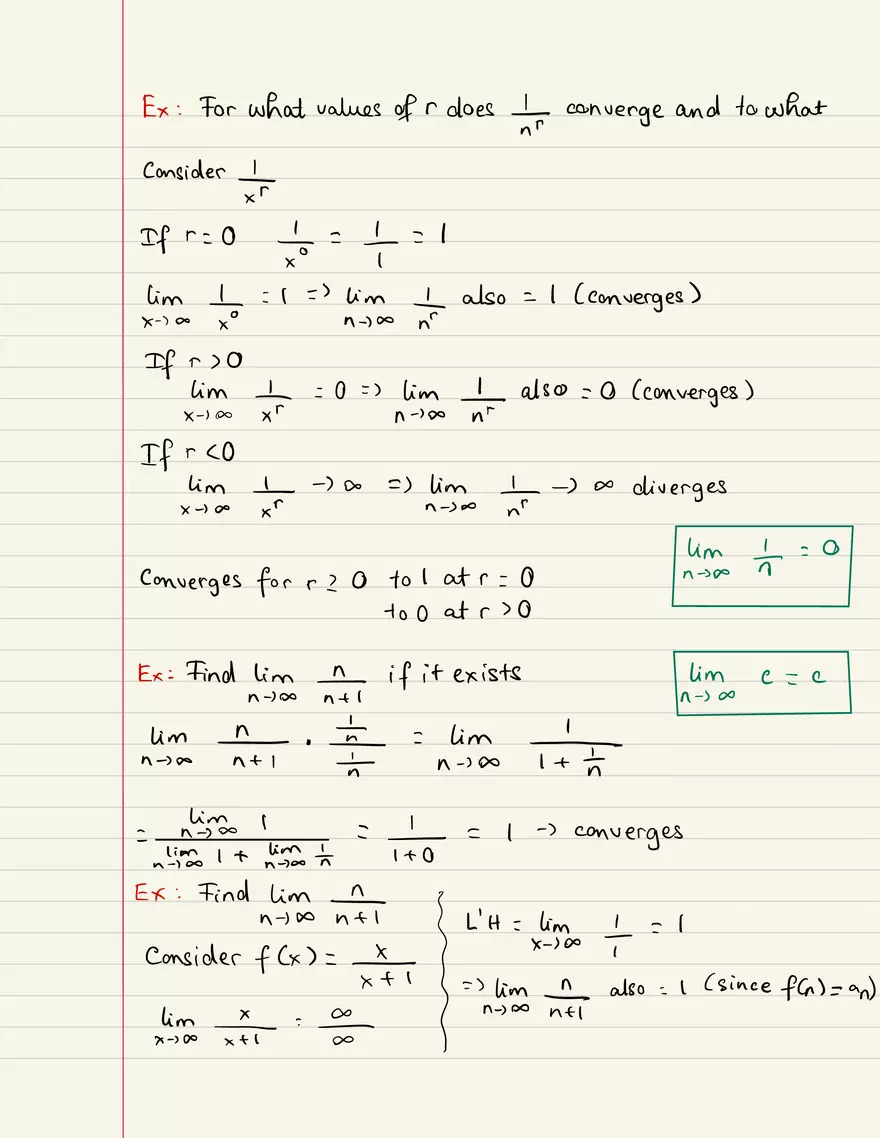 Ex: For what values of r does 1/n^r converge and to what
Consider 1/x^r
If r=0 1/x^0 = 1/1 = 1
lim x→∞ 1/x^0 = 1 => lim n→∞ 1/n^r also = 1 (converges)
If r>0
lim x→∞ 1/x^r = 0 => lim n→∞ 1/n^r also = 0 (converges)
If r<0
lim x→∞ 1/x^r → ∞ => lim n→∞ 1/n^r → ∞ diverges
lim n→∞ 1/n = 0
Converges for r ≥ 0 to 1 at r = 0
to 0 at r > 0
Ex: Find lim n→∞ n/(n+1) if it exists
lim n→∞ c = c
lim n→∞ n/(n+1) · (1/n)/(1/n) = lim n→∞ 1/(1 + 1/n)
= (lim n→∞ 1)/(lim n→∞ 1 + lim n→∞ 1/n) = 1/(1+0) = 1 → converges
Ex: Find lim n→∞ n/(n+1)
Consider f(x) = x/(x+1)
lim x→∞ x/(x+1) = ∞/∞
L'H = lim x→∞ 1/1 = 1
=> lim n→∞ n/(n+1) also = 1 (since f(n) = an)